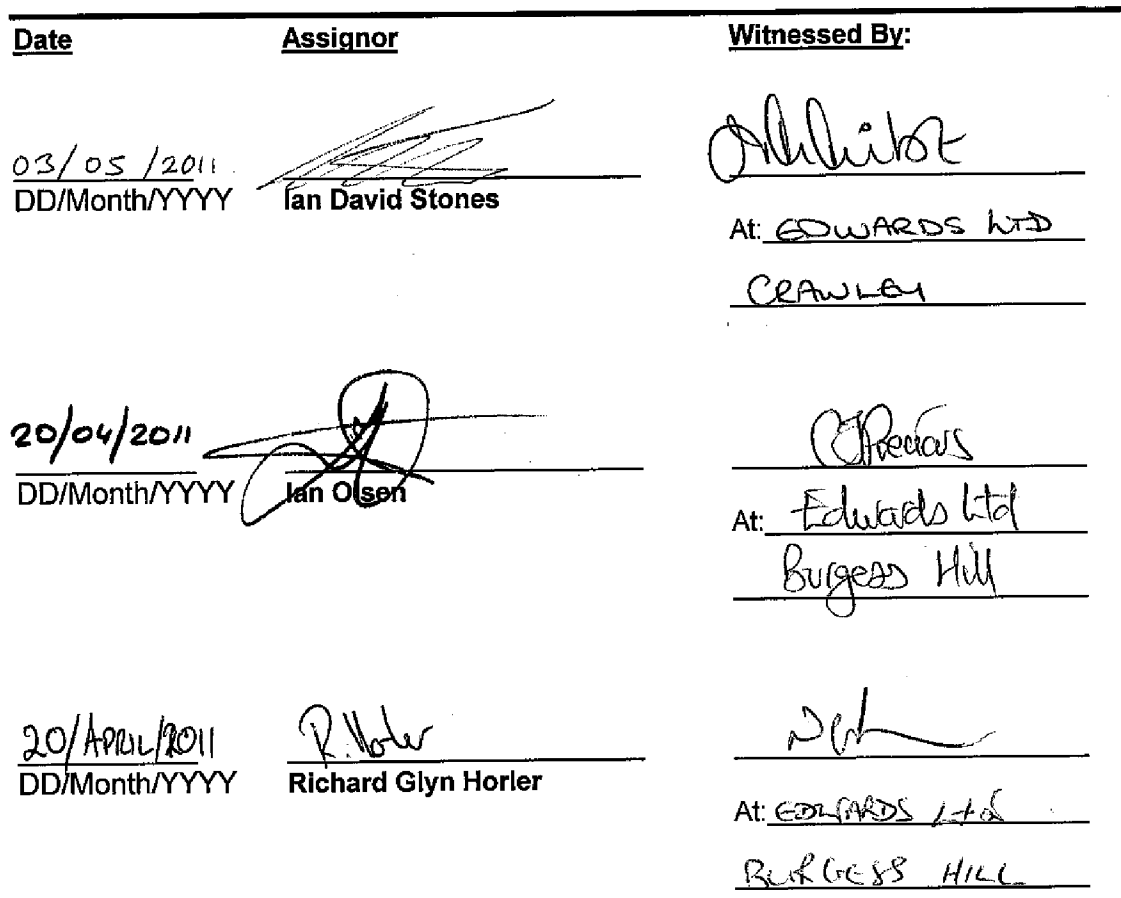 Date Assignor Witnessed By:
03/05/2011
DD/Month/YYYY Ian David Stones
At: EDWARDS LTD
CRAWLEY
20/04/2011
DD/Month/YYYY Ian Olsen
At: Edwards Ltd
Burgess Hill
20/APRIL/2011 R. Horler
DD/Month/YYYY Richard Glyn Horler
At: EDWARDS Ltd
BURGESS HILL